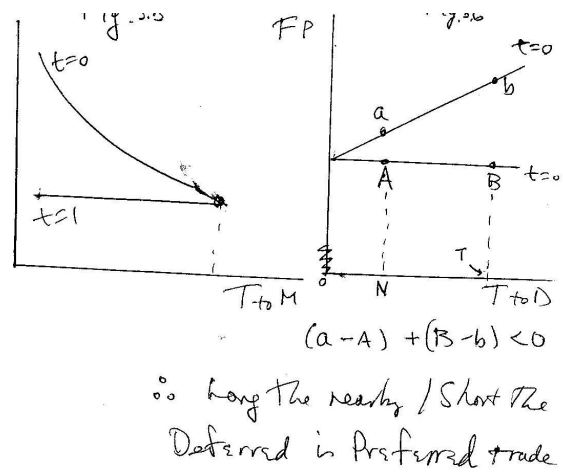 Fig. 5.5
t=0
t=1
T to M
FP
Fig. 5.6
t=0
a
b
A
B
t=0
T
0
N
T to D
(a-A) + (B-b) <0
∴ Long the nearby / Short The
Deferred is Preferred trade